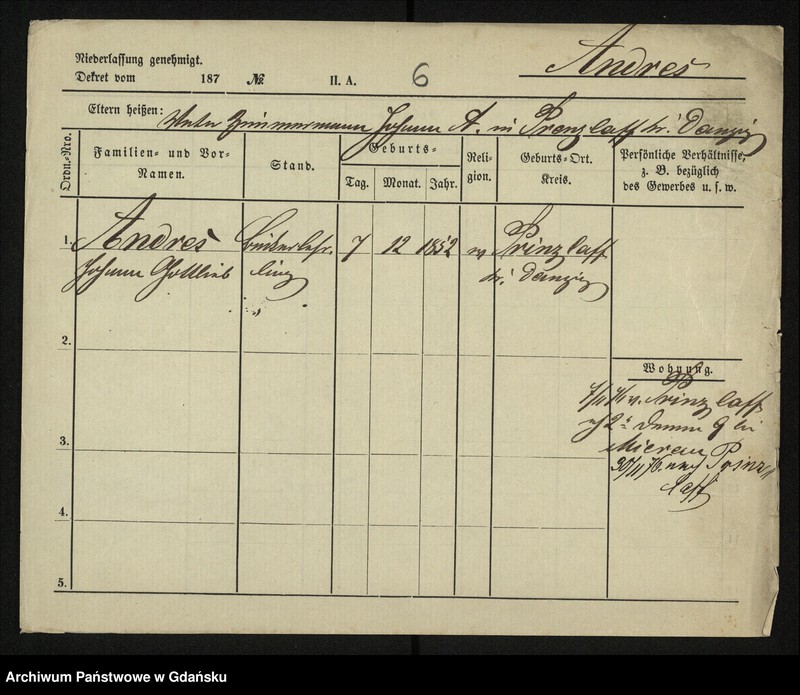 Niederlassung genehmigt.
Dekret vom 187 № II. A. 6
Andres
Eltern heißen: Vater Zimmermann Johann A. in Prenzlaff kr. Danzig
Ordn.-Nro.
Familien- und Vor-Namen.
Stand.
Geburts-
Tag. Monat. Jahr.
Reli-gion.
Geburts-Ort.
Kreis.
Persönliche Verhältnisse,
z. B. bezüglich
des Gewerbes u. s. w.
1. Andres 7 12 1852 Prinzlaff
Johann Gottlieb ling kr. Danzig
2.
Wohnung.
v. Prinzlaff
2 Damm 9 bei
3.
Mierau
30/11 76. nach Prinz
laff
4.
5.
Archiwum Państwowe w Gdańsku